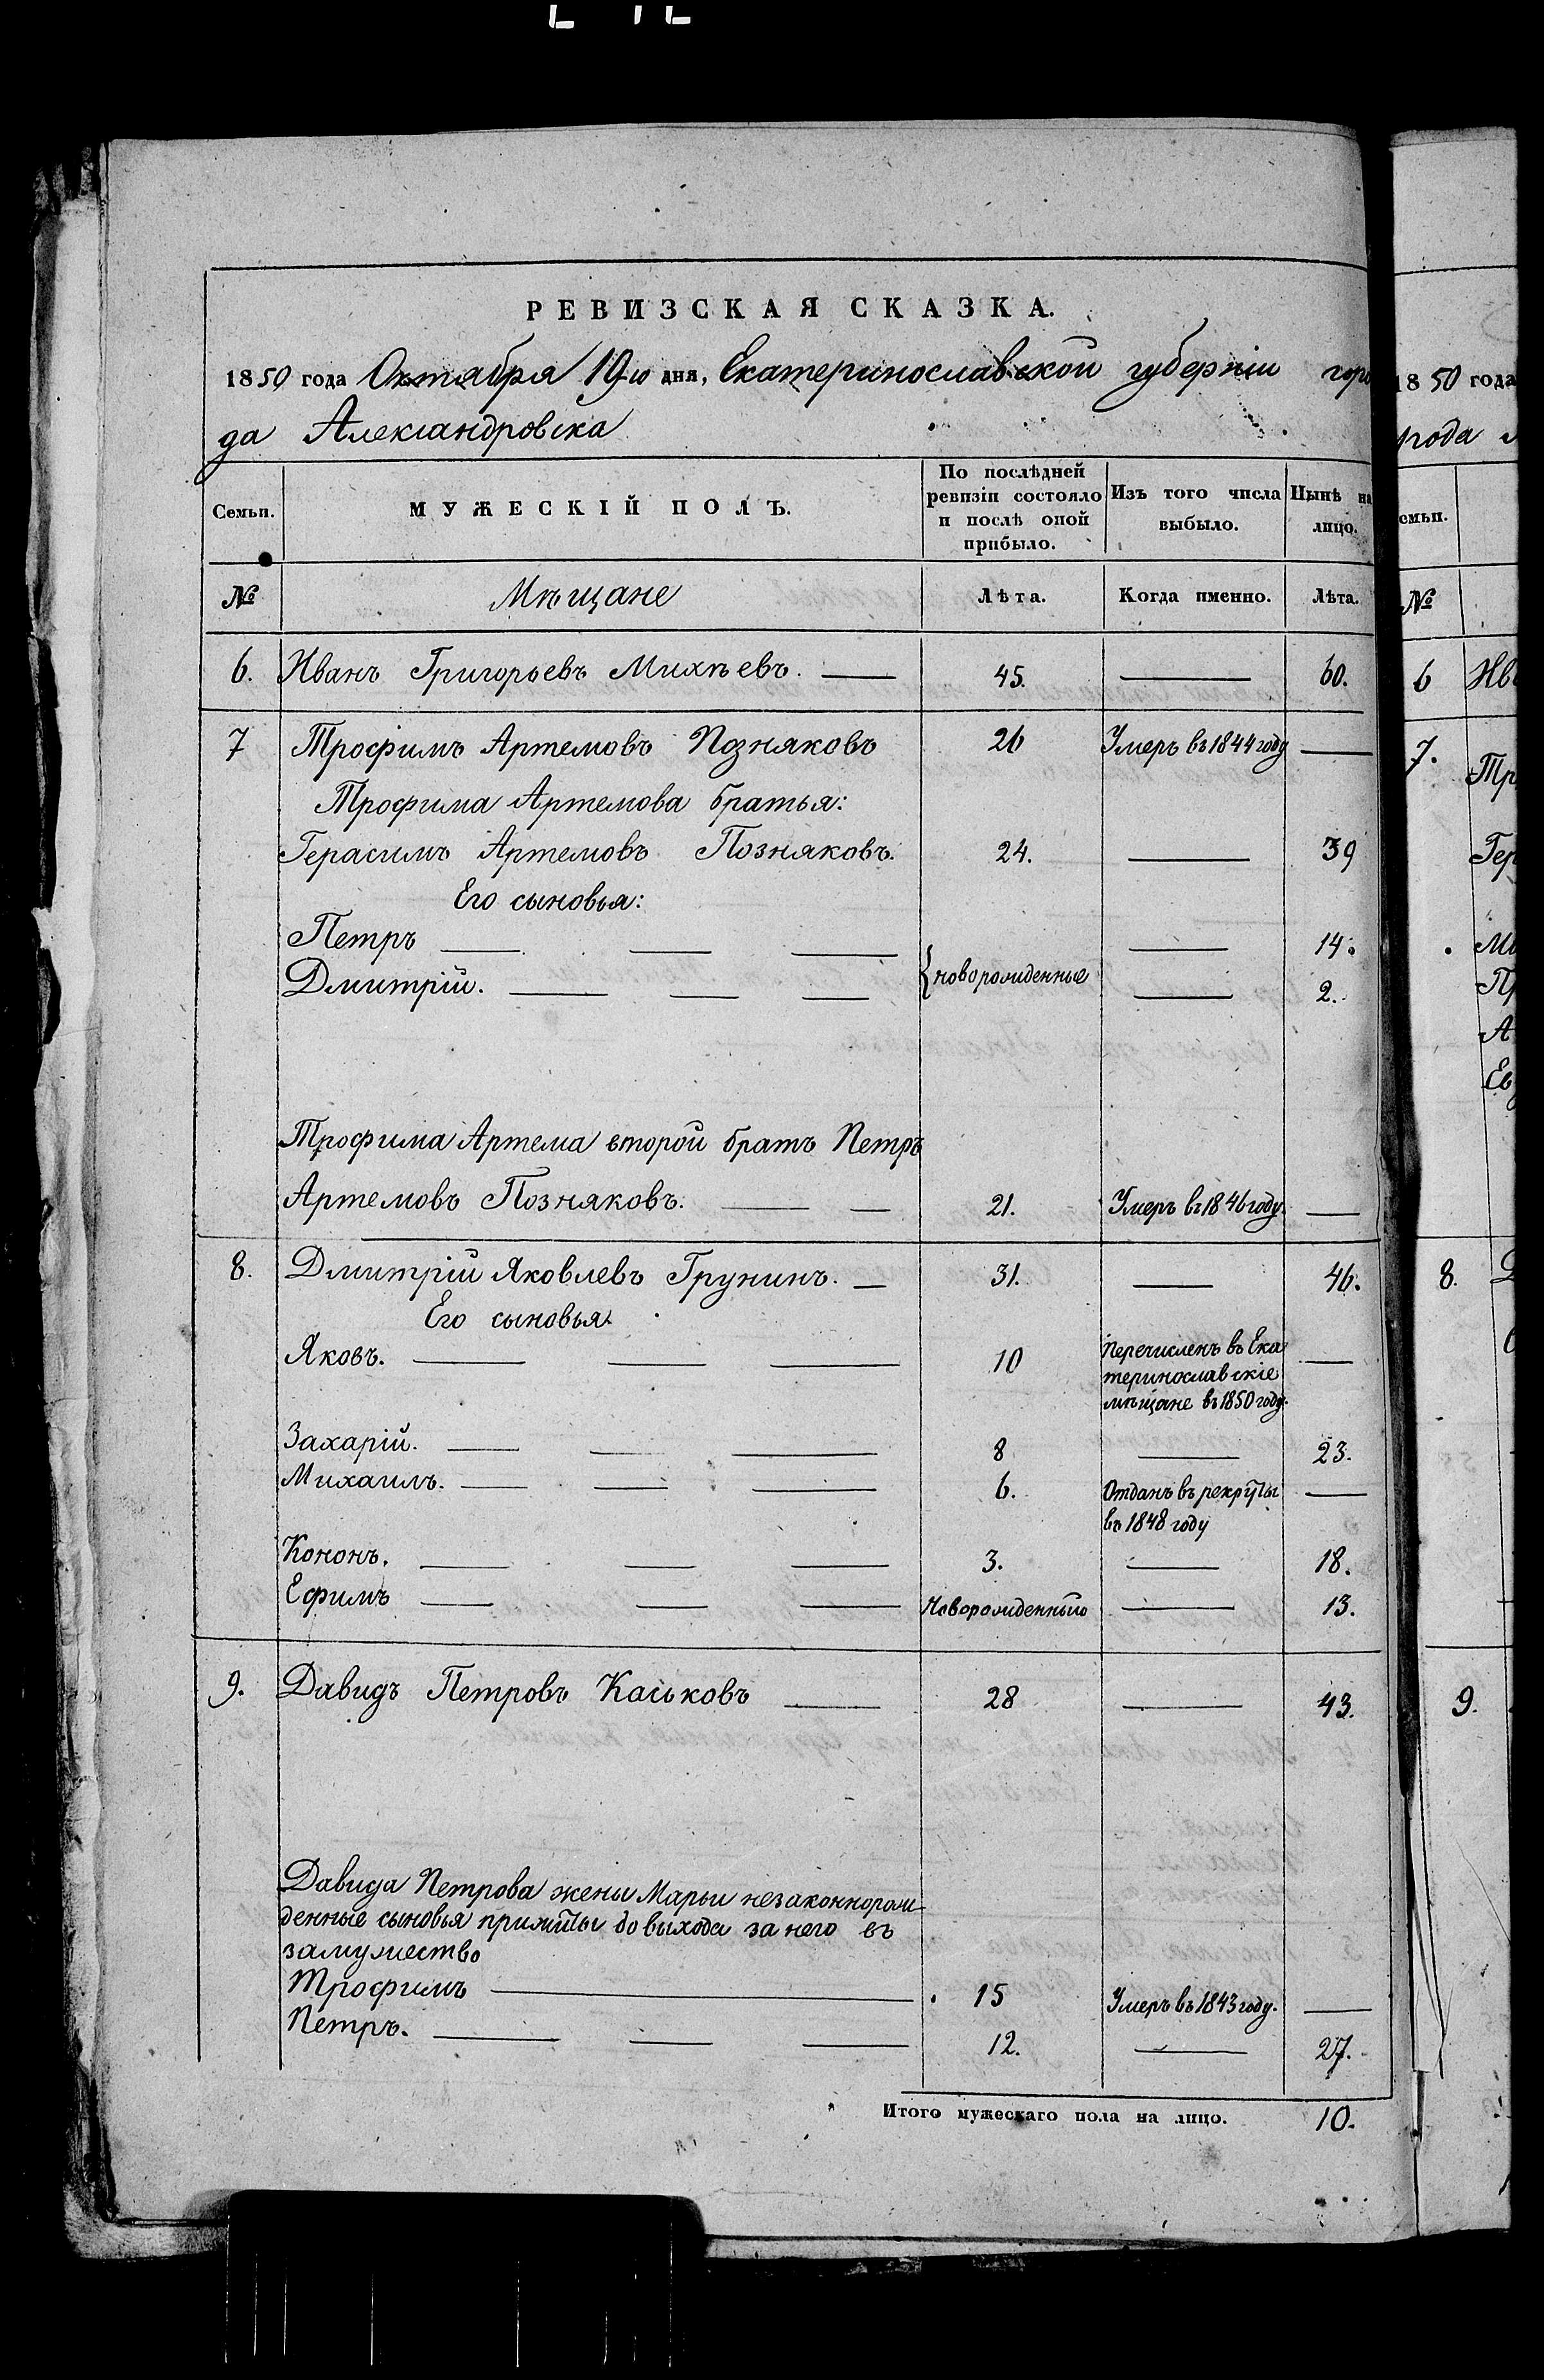 РЕВИЗСКАЯ СКАЗКА.
1850 года Октября 19го дня, Екатеринославской губерніи горо
да Александровска
Семьи.
МУЖЕСКІЙ ПОЛЪ.
По послѣдней ревизіи состояло и послѣ оной прибыло.
Изъ того числа выбыло.
Нынѣ на лицо.
№ Мѣщане Лѣта. Когда именно. Лѣта.
6. Иванъ Григорьевъ Михѣевъ. — 45. — 60.
7 Трофимъ Артемовъ Позняковъ 26 Умеръ въ 1844 году —
Трофима Артемова братья:
Герасимъ Артемовъ Позняковъ. 24. — 39
Его сыновья:
Петръ — — — { новорожденные — 14.
Дмитрій. — — — — 2.
Трофима Артема второй братъ Петръ
Артемовъ Позняковъ. — — 21. Умеръ въ 1846 году. —
8. Дмитрій Яковлевъ Грунинъ. — 31. — 46.
Его сыновья.
Яковъ. — — — 10 перечисленъ въ Ека —
теринославскіе
мѣщане въ 1850 году.
Захарій. — — — 8 — 23.
Михаилъ. — — — 6. Отданъ въ рекруты —
въ 1848 году
Кононъ. — — — 3. — 18.
Ефимъ — — — Новорожденный — 13.
9. Давидъ Петровъ Каськовъ — 28 — 43.
Давида Петрова жены Марьи незаконнорож
денные сыновья прижиты до выхода за него въ
замужество
Трофимъ — 15 Умеръ въ 1843 году. —
Петръ. — — — 12. — 27.
Итого мужескаго пола на лицо. 10.
1850 года
рода
семьи.
№
6 Ив
7. Тр
Гер
Ми
Пр
А
Ев
8.
9.